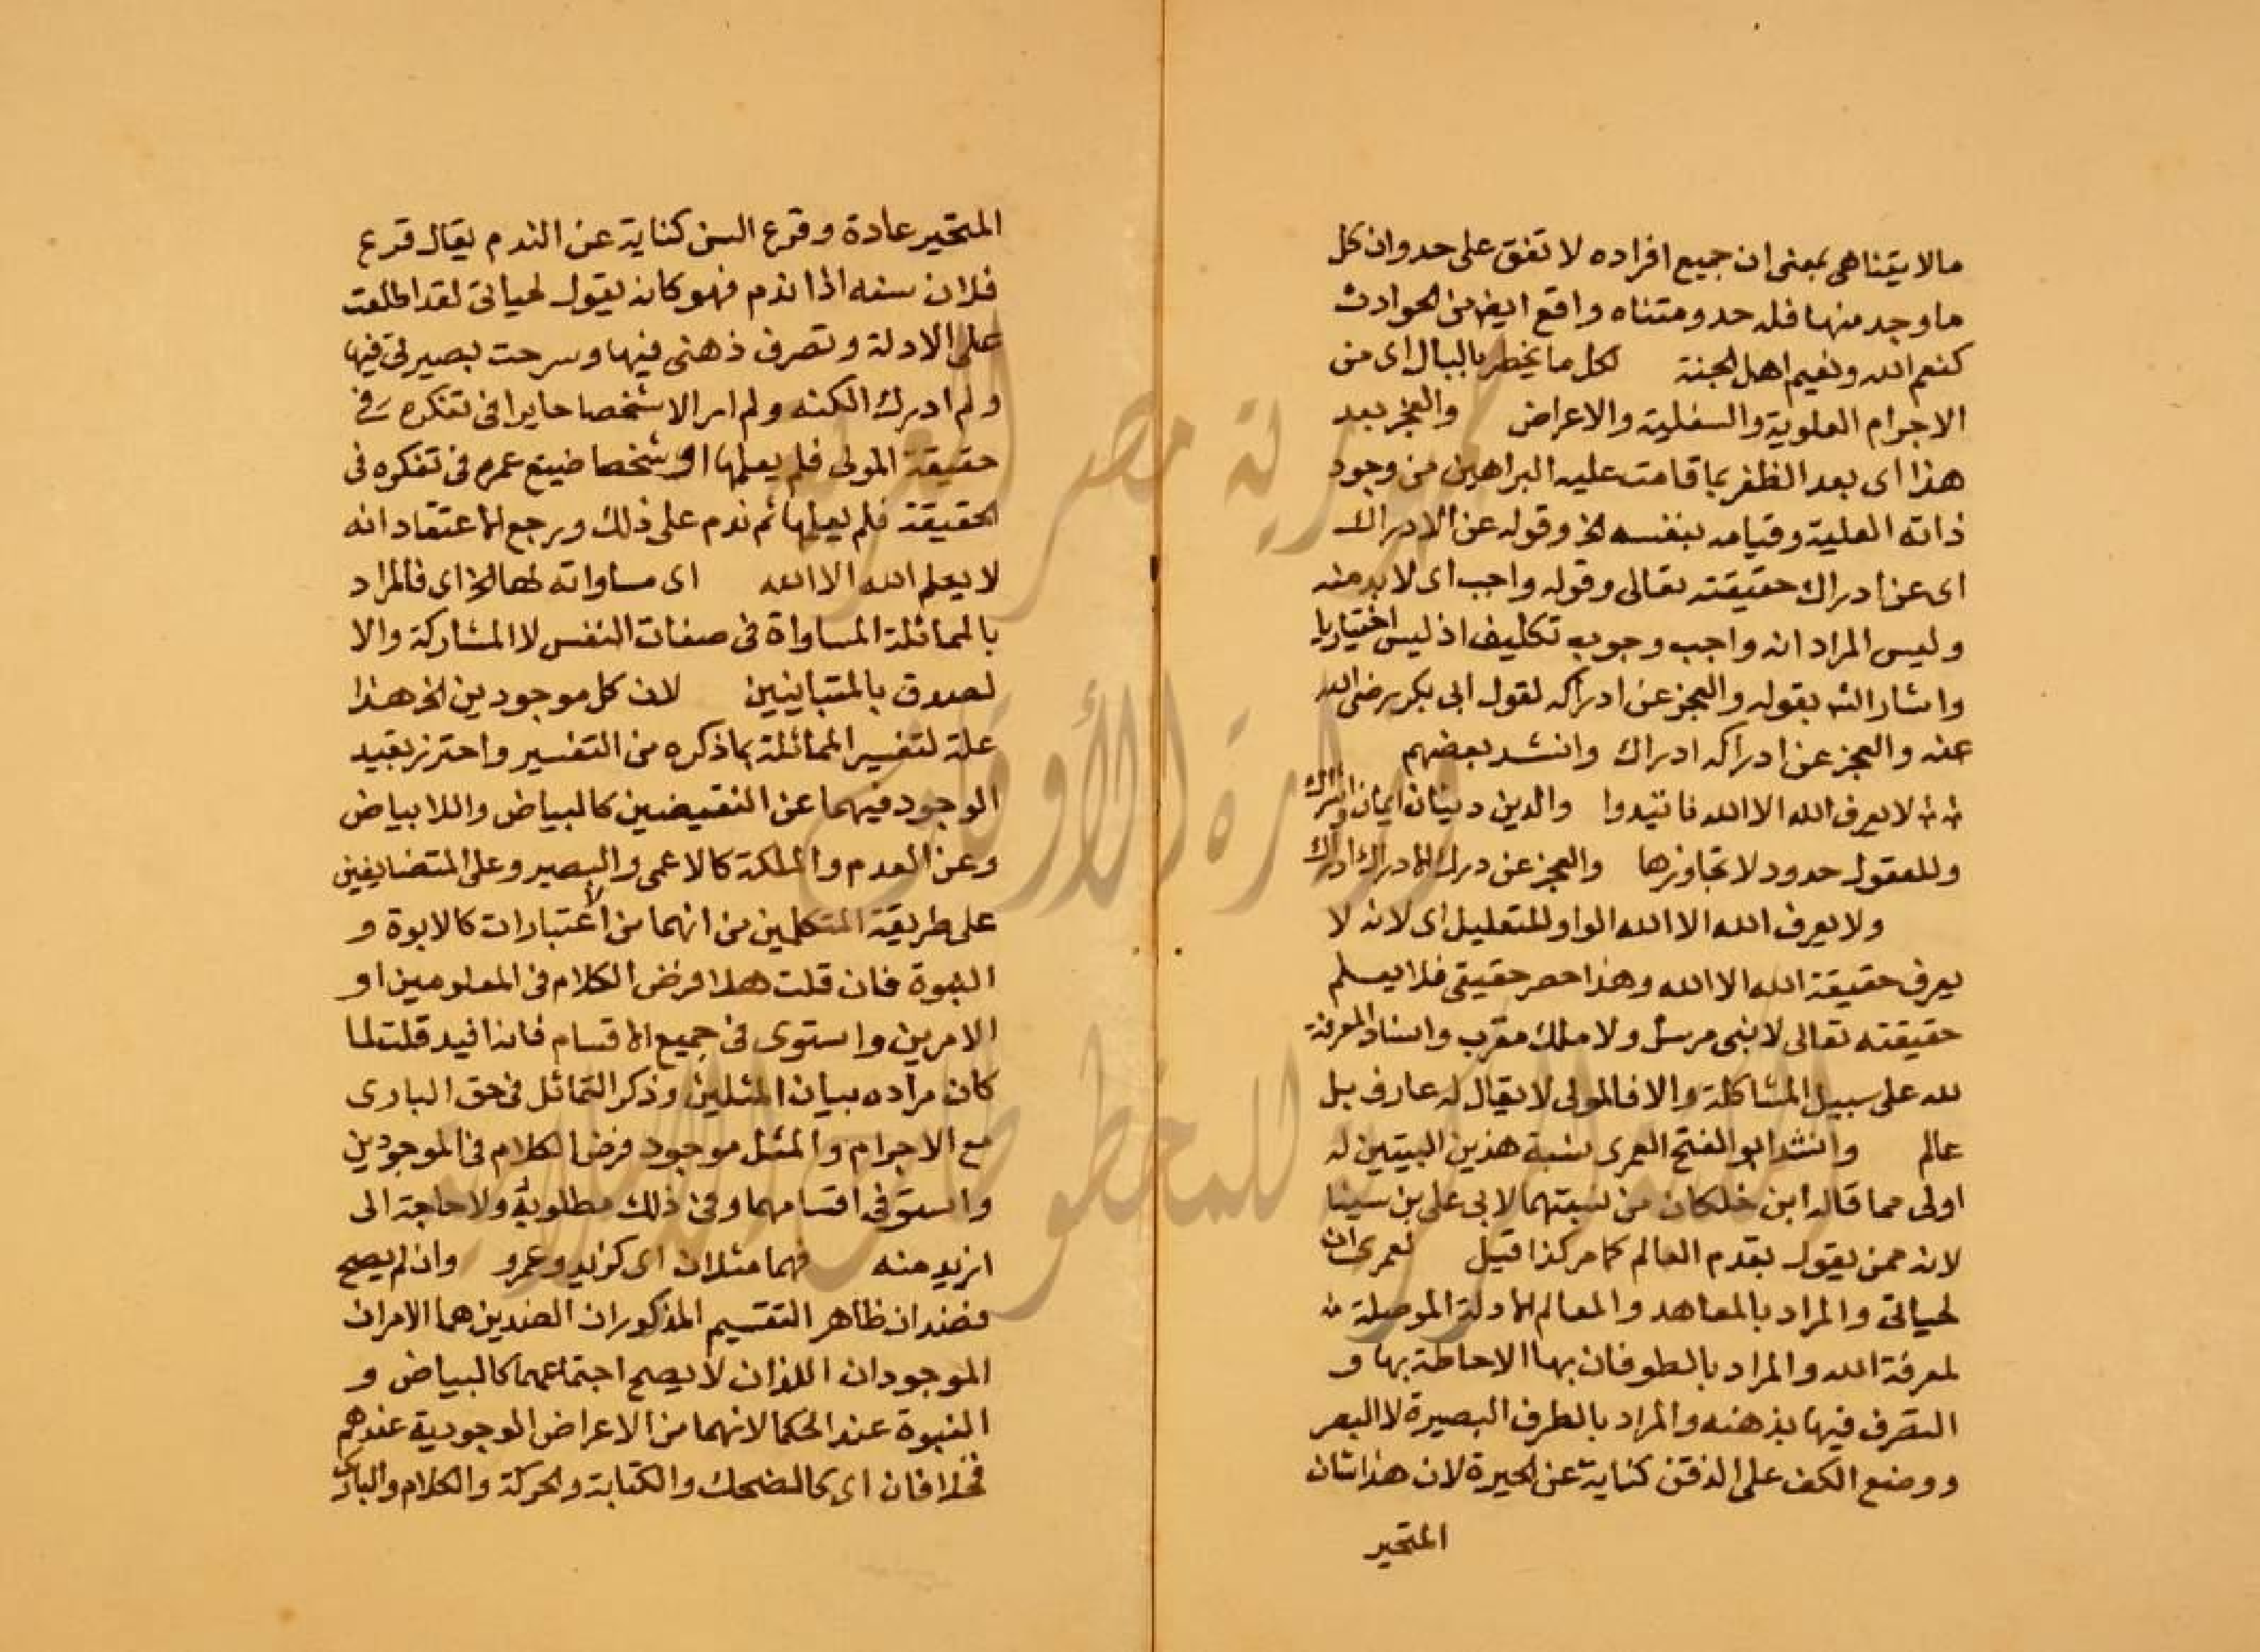 مالا يتناهى بمعنى ان جميع افراده لا تقف على حد وان كل
ما وجد منها فله حد ومتناه واقع ايضا من الحوادث
كنعم الله ونعيم اهل الجنة لكل ما يخطر بالبال اى من
الاجرام العلوية والسفلية والاعراض والعجز بعد
هذا اى بعد الظفر بما قامت عليه البراهين من وجود
ذاته العلية وقيامه بنفسه الخ وقوله عن الادراك
اى عن ادراك حقيقته تعالى وقوله واجب اى لا بد منه
وليس المراد انه واجب وجوب تكليف اذ ليس اختياريا
واشار الش بقوله والعجز عن ادراكه لقول ابى بكر رضى الله
عنه والعجز عن ادراكه ادراك وانشد بعضهم
لا يعرف الله الا الله فاتيدوا والدين دينان ايمان واشراك
وللعقول حدود لا تجاوزها والعجز عن درك الادراك ادراك
ولا يعرف الله الا الله الواو للتعليل اى لانه لا
يعرف حقيقة الله الا الله وهذا حصر حقيقى فلا يعلم
حقيقته تعالى لا نبى مرسل ولا ملك مقرب واسناد المعرفة
لله على سبيل المشاكلة والا فالمولى لا يقال له عارف بل
عالم وانشد ابو الفتح العمرى نسبة هذين البيتين له
اولى مما قاله ابن خلكان من نسبتهما لابى على بن سينا
لانه ممن يقول بقدم العالم كما مر كذا قيل لعمرى اى
لحياتى والمراد بالمعاهد والمعالم الادلة الموصلة
لمعرفة الله والمراد بالطوفان بها الاحاطة بها و
التصرف فيها بذهنه والمراد بالطرف البصيرة لا البصر
ووضع الكف على الذقن كناية عن الحيرة لان هذا شان
المتحير
المتحير عادة وقرع السن كناية عن الندم يقال قرع
فلان سنه اذا ندم فهو كانه يقول لحياتى لقد اطلعت
على الادلة وتصرف ذهنى فيها وسرحت بصيرتى فيها
ولم ادرك الكنه ولم ار الا شخصا حايرا فى تفكره فى
حقيقة المولى فلم يعلمها او شخصا ضيع عمره فى تفكره فى
الحقيقة فلم يعلمها ثم ندم على ذلك ورجع الى اعتقاد انه
لا يعلم الله الا الله اى مساواته لها الخ اى فالمراد
بالمماثلة المساواة فى صفات النفس لا المشاركة والا
لصدق بالمتباينين لان كل موجودين الخ هذا
علة لتفسير المماثلة بما ذكره من التفسير واحترز بقيد
الوجود فيهما عن النقيضين كالبياض واللا بياض
وعن العدم والملكة كالاعمى والبصير وعلى المتضايفين
على طريقة المتكلمين من انهما من الاعتبارات كالابوة و
البنوة فان قلت هلا فرض الكلام فى المعلومين او
الامرين واستوى فى جميع الاقسام فانه افيد قلت لما
كان مراده بيان المثلين وذكر التماثل فى حق البارى
مع الاجرام والمثل موجود فرض الكلام فى الموجودين
واستوفى اقسامهما وفى ذلك مطلوبه ولا حاجة الى
ازيد منه فهما مثلان اى كزيد وعمرو وان لم يصح
فضدان ظاهر التقسيم المذكور ان الضدين هما الامران
الموجودان اللذان لا يصح اجتماعهما كالبياض و
البنوة عند الحكما لانهما من الاعراض الوجودية عندهم
فخلافان اى كالضحك والكتابة والحركة والكلام والبارى